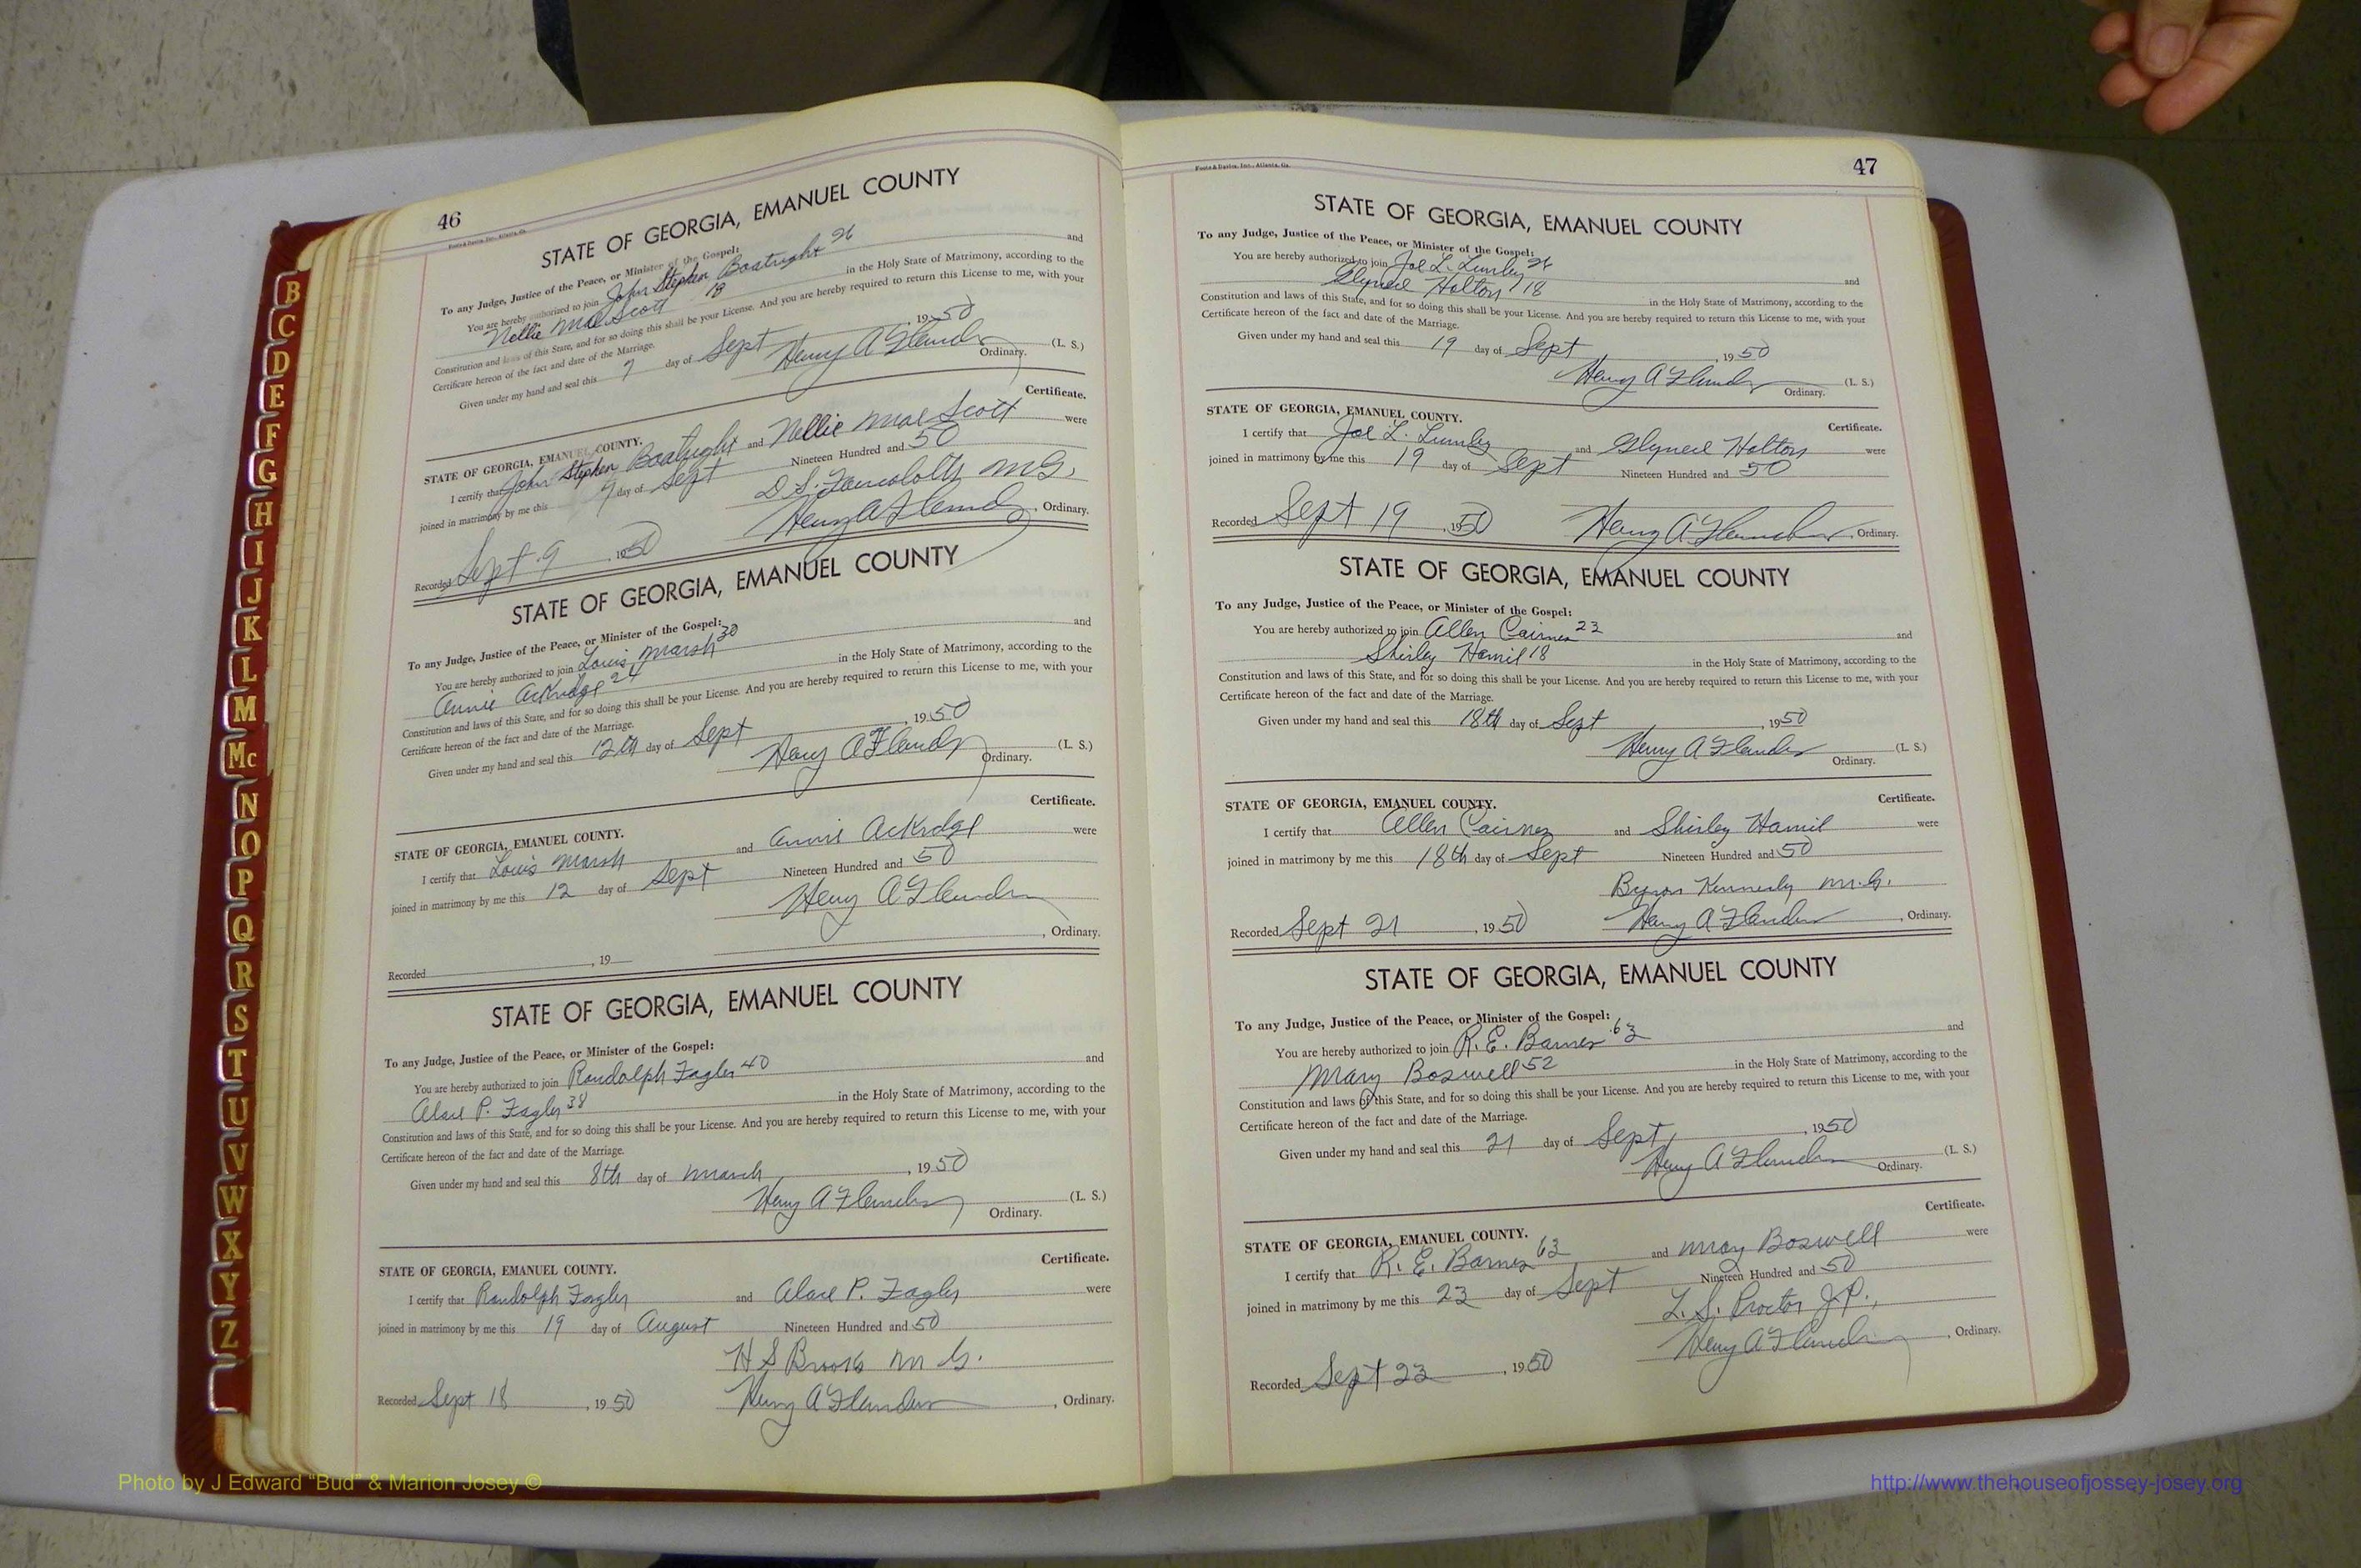 46
STATE OF GEORGIA, EMANUEL COUNTY
To any Judge, Justice of the Peace, or Minister of the Gospel:
You are hereby authorized to join John Stephen Boatright 26 and
Nellie Mae Scott 18 in the Holy State of Matrimony, according to the
Constitution and laws of this State, and for so doing this shall be your License. And you are hereby required to return this License to me, with your
Certificate hereon of the fact and date of the Marriage.
Given under my hand and seal this 9 day of Sept 1950
Henry A Flanders (L. S.)
Ordinary.
Certificate.
STATE OF GEORGIA, EMANUEL COUNTY.
I certify that John Stephen Boatright and Nellie Mae Scott were
joined in matrimony by me this 9 day of Sept Nineteen Hundred and 50
D S. M G.
Henry A Flanders, Ordinary.
Recorded Sept 9 1950
STATE OF GEORGIA, EMANUEL COUNTY
To any Judge, Justice of the Peace, or Minister of the Gospel:
You are hereby authorized to join Louis Marsh 30 and
Annie Ackridge 24 in the Holy State of Matrimony, according to the
Constitution and laws of this State, and for so doing this shall be your License. And you are hereby required to return this License to me, with your
Certificate hereon of the fact and date of the Marriage.
Given under my hand and seal this 12th day of Sept, 1950
Henry A Flanders (L. S.)
Ordinary.
Certificate.
STATE OF GEORGIA, EMANUEL COUNTY.
I certify that Louis Marsh and Annie Ackridge were
joined in matrimony by me this 12 day of Sept Nineteen Hundred and 50
Henry A Flanders
, Ordinary.
Recorded , 19
STATE OF GEORGIA, EMANUEL COUNTY
To any Judge, Justice of the Peace, or Minister of the Gospel:
You are hereby authorized to join Randolph Fagler 40 and
P. Fagler 38 in the Holy State of Matrimony, according to the
Constitution and laws of this State, and for so doing this shall be your License. And you are hereby required to return this License to me, with your
Certificate hereon of the fact and date of the Marriage.
Given under my hand and seal this 8th day of March, 1950
Henry A Flanders (L. S.)
Ordinary.
Certificate.
STATE OF GEORGIA, EMANUEL COUNTY.
I certify that Randolph Fagler and P. Fagler were
joined in matrimony by me this 19 day of August Nineteen Hundred and 50
H S Brooks M G.
Recorded Sept 18, 1950 Henry A Flanders, Ordinary.
47
Foote & Davies, Inc., Atlanta, Ga.
STATE OF GEORGIA, EMANUEL COUNTY
To any Judge, Justice of the Peace, or Minister of the Gospel:
You are hereby authorized to join Joe L. Lumley 26 and
Glyneil Holton 18 in the Holy State of Matrimony, according to the
Constitution and laws of this State, and for so doing this shall be your License. And you are hereby required to return this License to me, with your
Certificate hereon of the fact and date of the Marriage.
Given under my hand and seal this 19 day of Sept, 1950
Henry A Flanders (L. S.)
Ordinary.
STATE OF GEORGIA, EMANUEL COUNTY.
Certificate.
I certify that Joe L. Lumley and Glyneil Holton were
joined in matrimony by me this 19 day of Sept Nineteen Hundred and 50
Recorded Sept 19, 1950 Henry A Flanders, Ordinary.
STATE OF GEORGIA, EMANUEL COUNTY
To any Judge, Justice of the Peace, or Minister of the Gospel:
You are hereby authorized to join Allen Cairnes 23 and
Shirley Hamil 18 in the Holy State of Matrimony, according to the
Constitution and laws of this State, and for so doing this shall be your License. And you are hereby required to return this License to me, with your
Certificate hereon of the fact and date of the Marriage.
Given under my hand and seal this 18th day of Sept, 1950
Henry A Flanders (L. S.)
Ordinary.
STATE OF GEORGIA, EMANUEL COUNTY.
Certificate.
I certify that Allen Cairnes and Shirley Hamil were
joined in matrimony by me this 18th day of Sept Nineteen Hundred and 50
Byron Kennedy M.G.
Recorded Sept 21, 1950 Henry A Flanders, Ordinary.
STATE OF GEORGIA, EMANUEL COUNTY
To any Judge, Justice of the Peace, or Minister of the Gospel:
You are hereby authorized to join R. E. Barnes 63 and
Mary Boswell 52 in the Holy State of Matrimony, according to the
Constitution and laws of this State, and for so doing this shall be your License. And you are hereby required to return this License to me, with your
Certificate hereon of the fact and date of the Marriage.
Given under my hand and seal this 21 day of Sept, 1950
Henry A Flanders (L. S.)
Ordinary.
Certificate.
STATE OF GEORGIA, EMANUEL COUNTY.
I certify that R. E. Barnes 63 and Mary Boswell were
joined in matrimony by me this 23 day of Sept Nineteen Hundred and 50
L. S. Proctor J.P.,
Henry A Flanders, Ordinary.
Recorded Sept 23, 1950
B
C
D
E
F
G
H
I
J
K
L
M
Mc
N
O
P
Q
R
S
T
U
V
W
X
Y
Z
Photo by J Edward "Bud" & Marion Josey ©
http://www.thehouseofjossey-josey.org